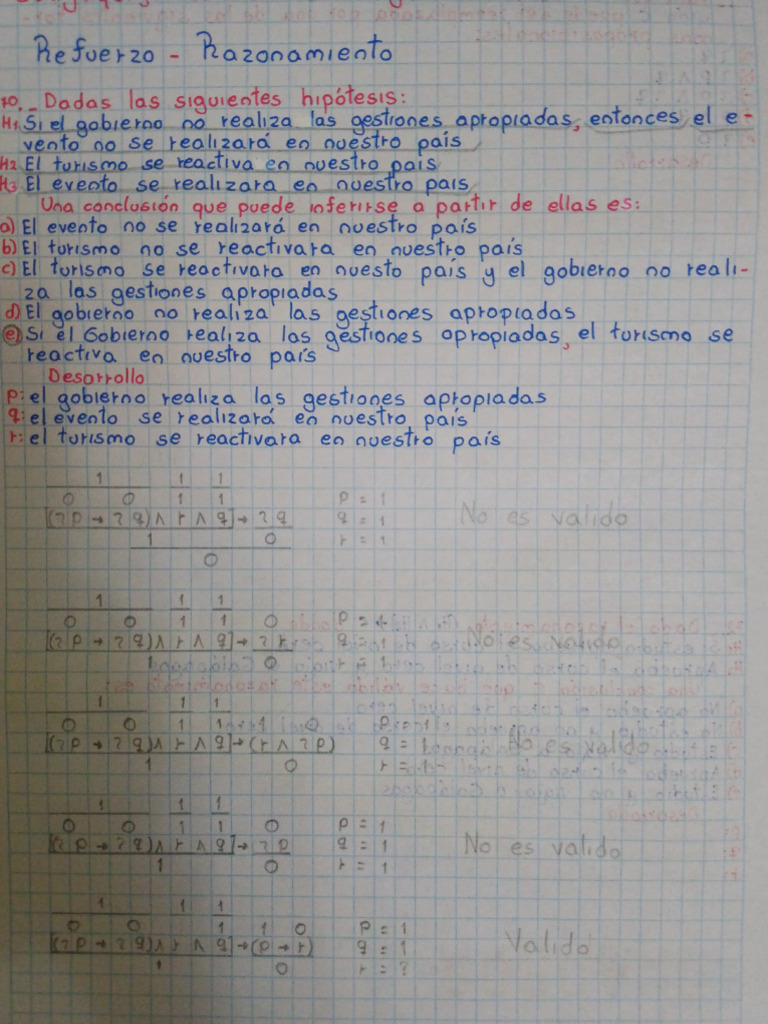 Refuerzo - Razonamiento
10._ Dadas las siguientes hipótesis:
H1 Si el gobierno no realiza las gestiones apropiadas, entonces el e-
vento no se realizará en nuestro país
H2 El turismo se reactiva en nuestro país
H3 El evento se realizara en nuestro pais
Una conclusión que puede inferirse a partir de ellas es:
a) El evento no se realizará en nuestro país
b) El turismo no se reactivara en nuestro país
c) El turismo se reactivara en nuesto país y el gobierno no reali-
za las gestiones apropiadas
d) El gobierno no realiza las gestiones apropiadas
e) Si el Gobierno realiza las gestiones apropiadas, el turismo se
reactiva en nuestro país
Desarrollo
p: el gobierno realiza las gestiones apropiadas
q: el evento se realizará en nuestro país
r: el turismo se reactivara en nuestro país
1 1 1
0 0 1 1 p = 1
[(¬p → ¬q) ∧ r ∧ q] → ¬q q = 1 No es valido
1 0 r = 1
0
1 1 1
0 0 1 1 0 p = 1
[(¬p → ¬q) ∧ r ∧ q] → ¬r q = 1 No es valido
1 0 r = 1
1 1 1
0 0 1 1 1 0 p = 1
[(¬p → ¬q) ∧ r ∧ q] → (r ∧ ¬p) q = 1 No es valido
1 0 r = 1
1 1 1
0 0 1 1 0 p = 1
[(¬p → ¬q) ∧ r ∧ q] → ¬p q = 1 No es valido
1 0 r = 1
1 1 1
0 0 1 1 0 p = 1
[(¬p → ¬q) ∧ r ∧ q] → (p → r) q = 1 Valido
1 0 r = ?